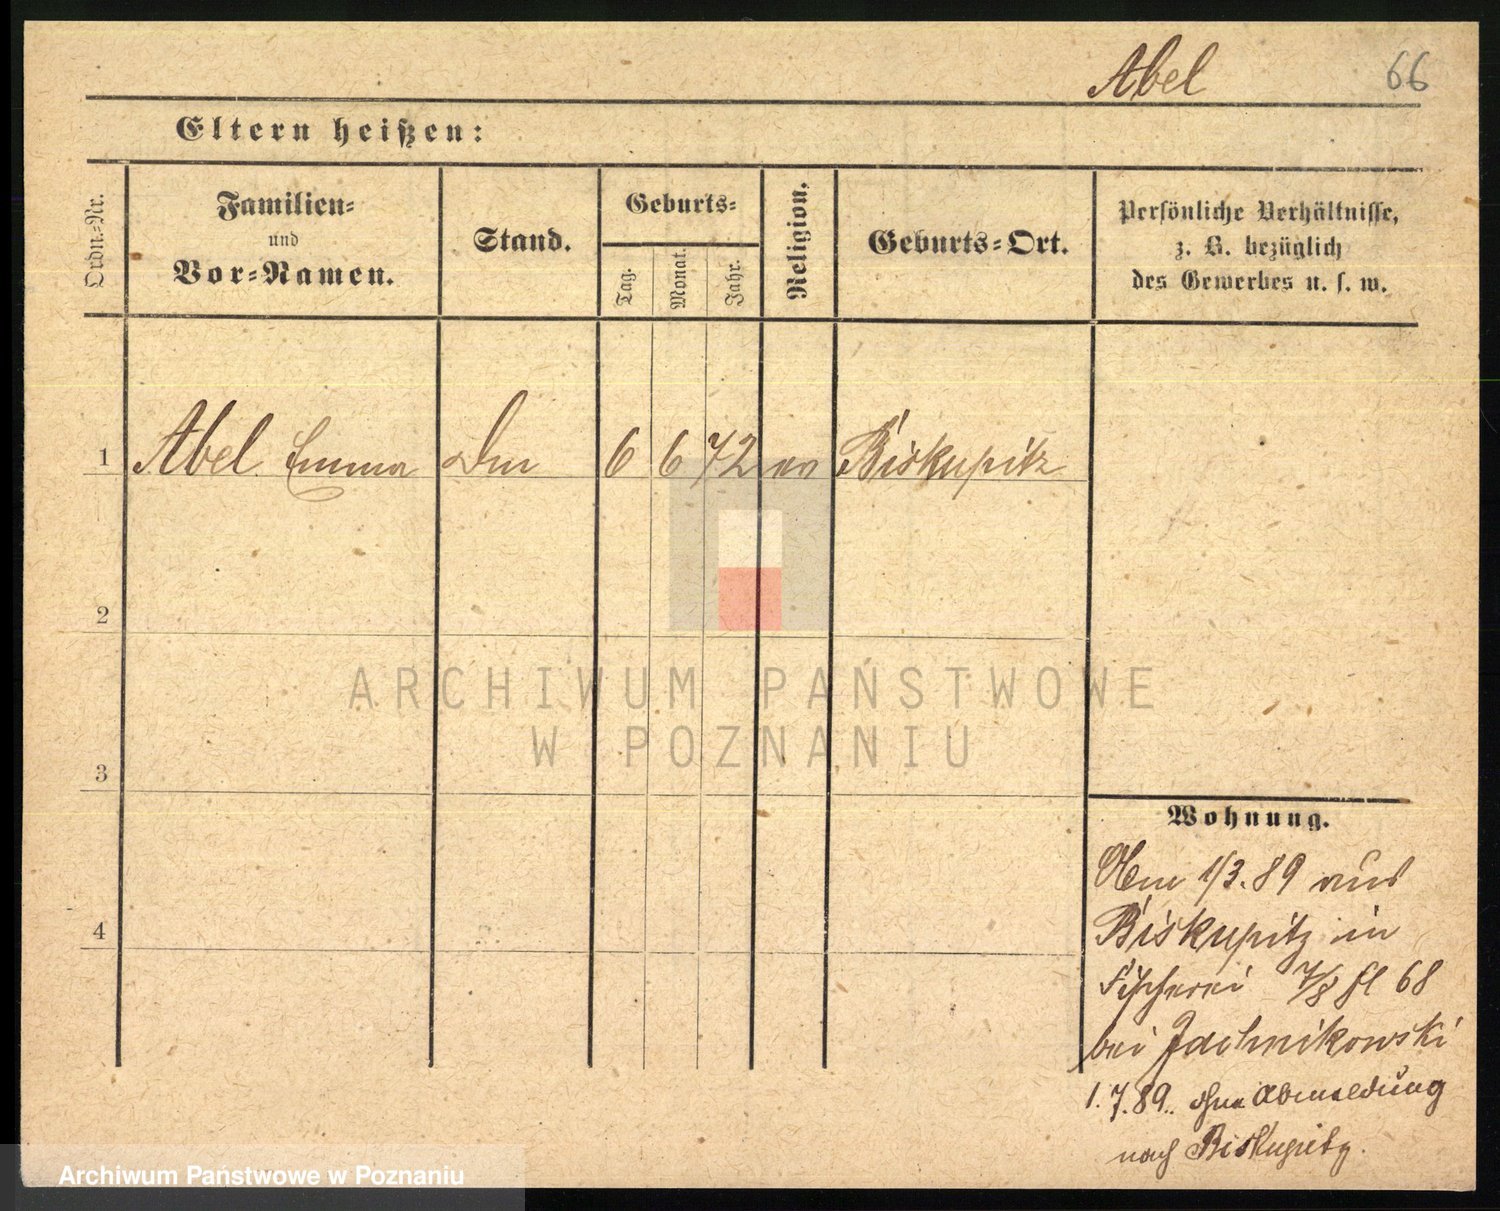 Abel 66
Eltern heißen:
Ordn.-Nr.
Familien-
und
Vor-Namen.
Stand.
Geburts-
Tag.
Monat.
Jahr.
Religion.
Geburts-Ort.
Persönliche Verhältnisse,
z. B. bezüglich
des Gewerbes u. s. w.
1 Abel Emma 6 6 72 ev Biskupitz
2
3
4
ARCHIWUM PAŃSTWOWE
W POZNANIU
Wohnung.
1/3.89 aus
Biskupitz in
Fischerei 7/8 68
bei
1.7.89. ohne Abmeldung
nach Biskupitz.
Archiwum Państwowe w Poznaniu